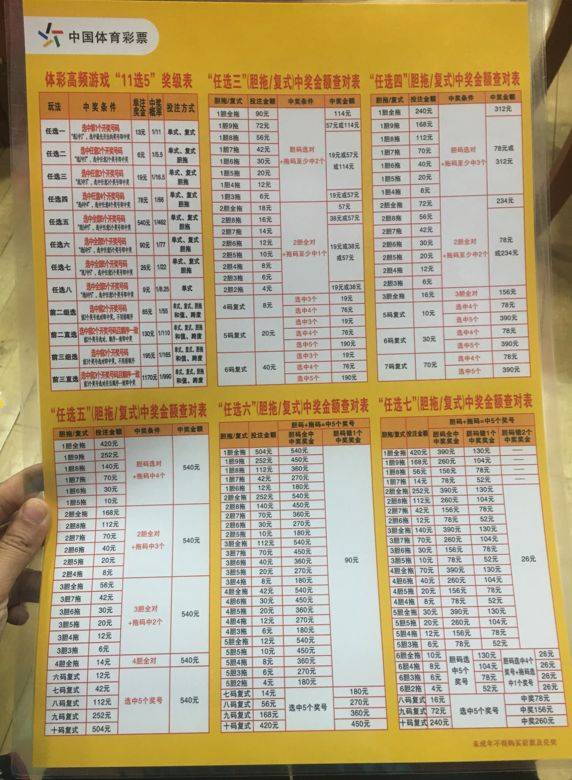 中国体育彩票
体彩高频游戏“11选5”奖级表
玩法 中奖条件 单注奖金 中奖概率 投注方式
任选一 选中前1个开奖号码 13元 1/11 单式、复式
任选二 选中任意2个开奖号码 6元 1/5.5 单式、复式 胆拖
任选三 选中任意3个开奖号码 19元 1/16.5 单式、复式 胆拖
任选四 选中任意4个开奖号码 78元 1/66 单式、复式 胆拖
任选五 选中全部5个开奖号码 540元 1/462 单式、复式 胆拖
任选六 选中全部5个开奖号码 90元 1/77 单式、复式 胆拖
任选七 选中全部5个开奖号码 26元 1/22 单式、复式 胆拖
任选八 选中全部5个开奖号码 9元 1/8.25 单式
前二组选 选中前2个开奖号码 65元 1/55
前二直选 选中前2个开奖号码且顺序一致 130元 1/110
前三组选 选中前3个开奖号码 195元 1/165
前三直选 选中前3个开奖号码且顺序一致 1170元 1/990
“任选三”(胆拖/复式)中奖金额查对表
胆拖/复式 投注金额 中奖条件 中奖金额
1胆全拖 90元 114元
1胆9拖 72元 57元或114元
1胆8拖 56元
1胆7拖 42元 胆码选对 19元或57元
1胆6拖 30元 +拖码至少中2个 或114元
1胆5拖 20元
1胆4拖 12元
1胆3拖 6元 19元或57元
2胆全拖 18元 57元
2胆8拖 16元 38元或57元
2胆7拖 14元
2胆6拖 12元 2胆全对 19元或38元
2胆5拖 10元 +拖码至少中1个 或57元
2胆4拖 8元
2胆3拖 6元
2胆2拖 4元 19元或38元
4码复式 8元 选中3个 19元
选中4个 76元
5码复式 20元 选中3个 19元
选中4个 76元
选中5个 190元
6码复式 40元 选中3个 19元
选中4个 76元
选中5个 190元
“任选四”(胆拖/复式)中奖金额查对表
胆拖/复式 投注金额 中奖条件 中奖金额
1胆全拖 240元 312元
1胆9拖 168元
1胆8拖 112元
1胆7拖 70元 胆码选对 78元或
1胆6拖 40元 +拖码至少中3个 312元
1胆5拖 20元
1胆4拖 8元
2胆全拖 72元 234元
2胆8拖 56元
2胆7拖 42元
2胆6拖 30元 2胆全对 78元
2胆5拖 20元 +拖码至少中2个 或234元
2胆4拖 12元
2胆3拖 6元
3胆全拖 16元 3胆全对 156元
5码复式 10元 选中4个 78元
选中5个 390元
6码复式 30元 选中4个 78元
选中5个 390元
7码复式 70元 选中4个 78元
选中5个 390元
“任选五”(胆拖/复式)中奖金额查对表
胆拖/复式 投注金额 中奖条件 中奖金额
1胆全拖 420元
1胆9拖 252元
1胆8拖 140元 胆码选对 540元
1胆7拖 70元 +拖码中4个
1胆6拖 30元
1胆5拖 10元
2胆全拖 168元
2胆8拖 112元
2胆7拖 70元 2胆全对 540元
2胆6拖 40元 +拖码中3个
2胆5拖 20元
2胆4拖 8元
3胆全拖 56元
3胆7拖 42元
3胆6拖 30元 3胆全对 540元
3胆5拖 20元 +拖码中2个
3胆4拖 12元
3胆3拖 6元
4胆全拖 14元 4胆全对 540元
六码复式 12元
七码复式 42元
八码复式 112元 选中5个奖号 540元
九码复式 252元
十码复式 504元
“任选六”(胆拖/复式)中奖金额查对表
胆码+拖码=中5个奖号
胆拖/复式 投注金额 胆码全中中奖奖金 胆码错1个中奖奖金
1胆全拖 504元 540元
1胆9拖 252元 450元
1胆8拖 112元 360元
1胆7拖 42元 270元
1胆6拖 12元 180元
2胆全拖 252元 540元
2胆8拖 140元 450元
2胆7拖 70元 360元
2胆6拖 30元 270元
2胆5拖 10元 180元
3胆全拖 112元 540元
3胆7拖 70元 450元 90元
3胆6拖 40元 360元
3胆5拖 20元 270元
3胆4拖 8元 180元
4胆全拖 42元 540元
4胆6拖 30元 450元
4胆5拖 20元 360元
4胆4拖 12元 270元
4胆3拖 6元 180元
5胆全拖 12元 540元
5胆5拖 10元 450元
5胆4拖 8元 360元
5胆3拖 6元 270元
5胆2拖 4元 180元
七码复式 14元 180元
八码复式 56元 选中5个奖号 270元
九码复式 168元 360元
十码复式 420元 450元
“任选七”(胆拖/复式)中奖金额查对表
胆码+拖码=中5个奖号
胆拖/复式 投注金额 胆码全中中奖奖金 胆码错1个中奖奖金 胆码错2个中奖奖金
1胆全拖 420元 390元 130元 —
1胆9拖 168元 260元 104元 —
1胆8拖 56元 156元 78元 —
1胆7拖 14元 78元 52元 —
2胆全拖 252元 390元 130元
2胆8拖 112元 260元 104元
2胆7拖 42元 156元 78元
2胆6拖 12元 78元 52元
3胆全拖 140元 390元 130元
3胆7拖 70元 260元 104元
3胆6拖 30元 156元 78元
3胆5拖 10元 78元 52元 26元
4胆全拖 70元 390元 130元
4胆6拖 40元 260元 104元
4胆5拖 20元 156元 78元
4胆4拖 8元 78元 52元
5胆全拖 30元 390元 130元
5胆5拖 20元 260元 104元
5胆4拖 12元 156元 78元
5胆3拖 6元 78元 52元
6胆全拖 10元 胆码选中5个奖号 130元 胆码选中4个奖号+拖码选中1个奖号 26元
6胆4拖 8元 104元 26元
6胆3拖 6元 78元 26元
6胆2拖 4元 52元 26元
八码复式 16元 中奖78元
九码复式 72元 选中5个奖号 中奖156元
十码复式 240元 中奖260元
未成年不得购买彩票及兑奖